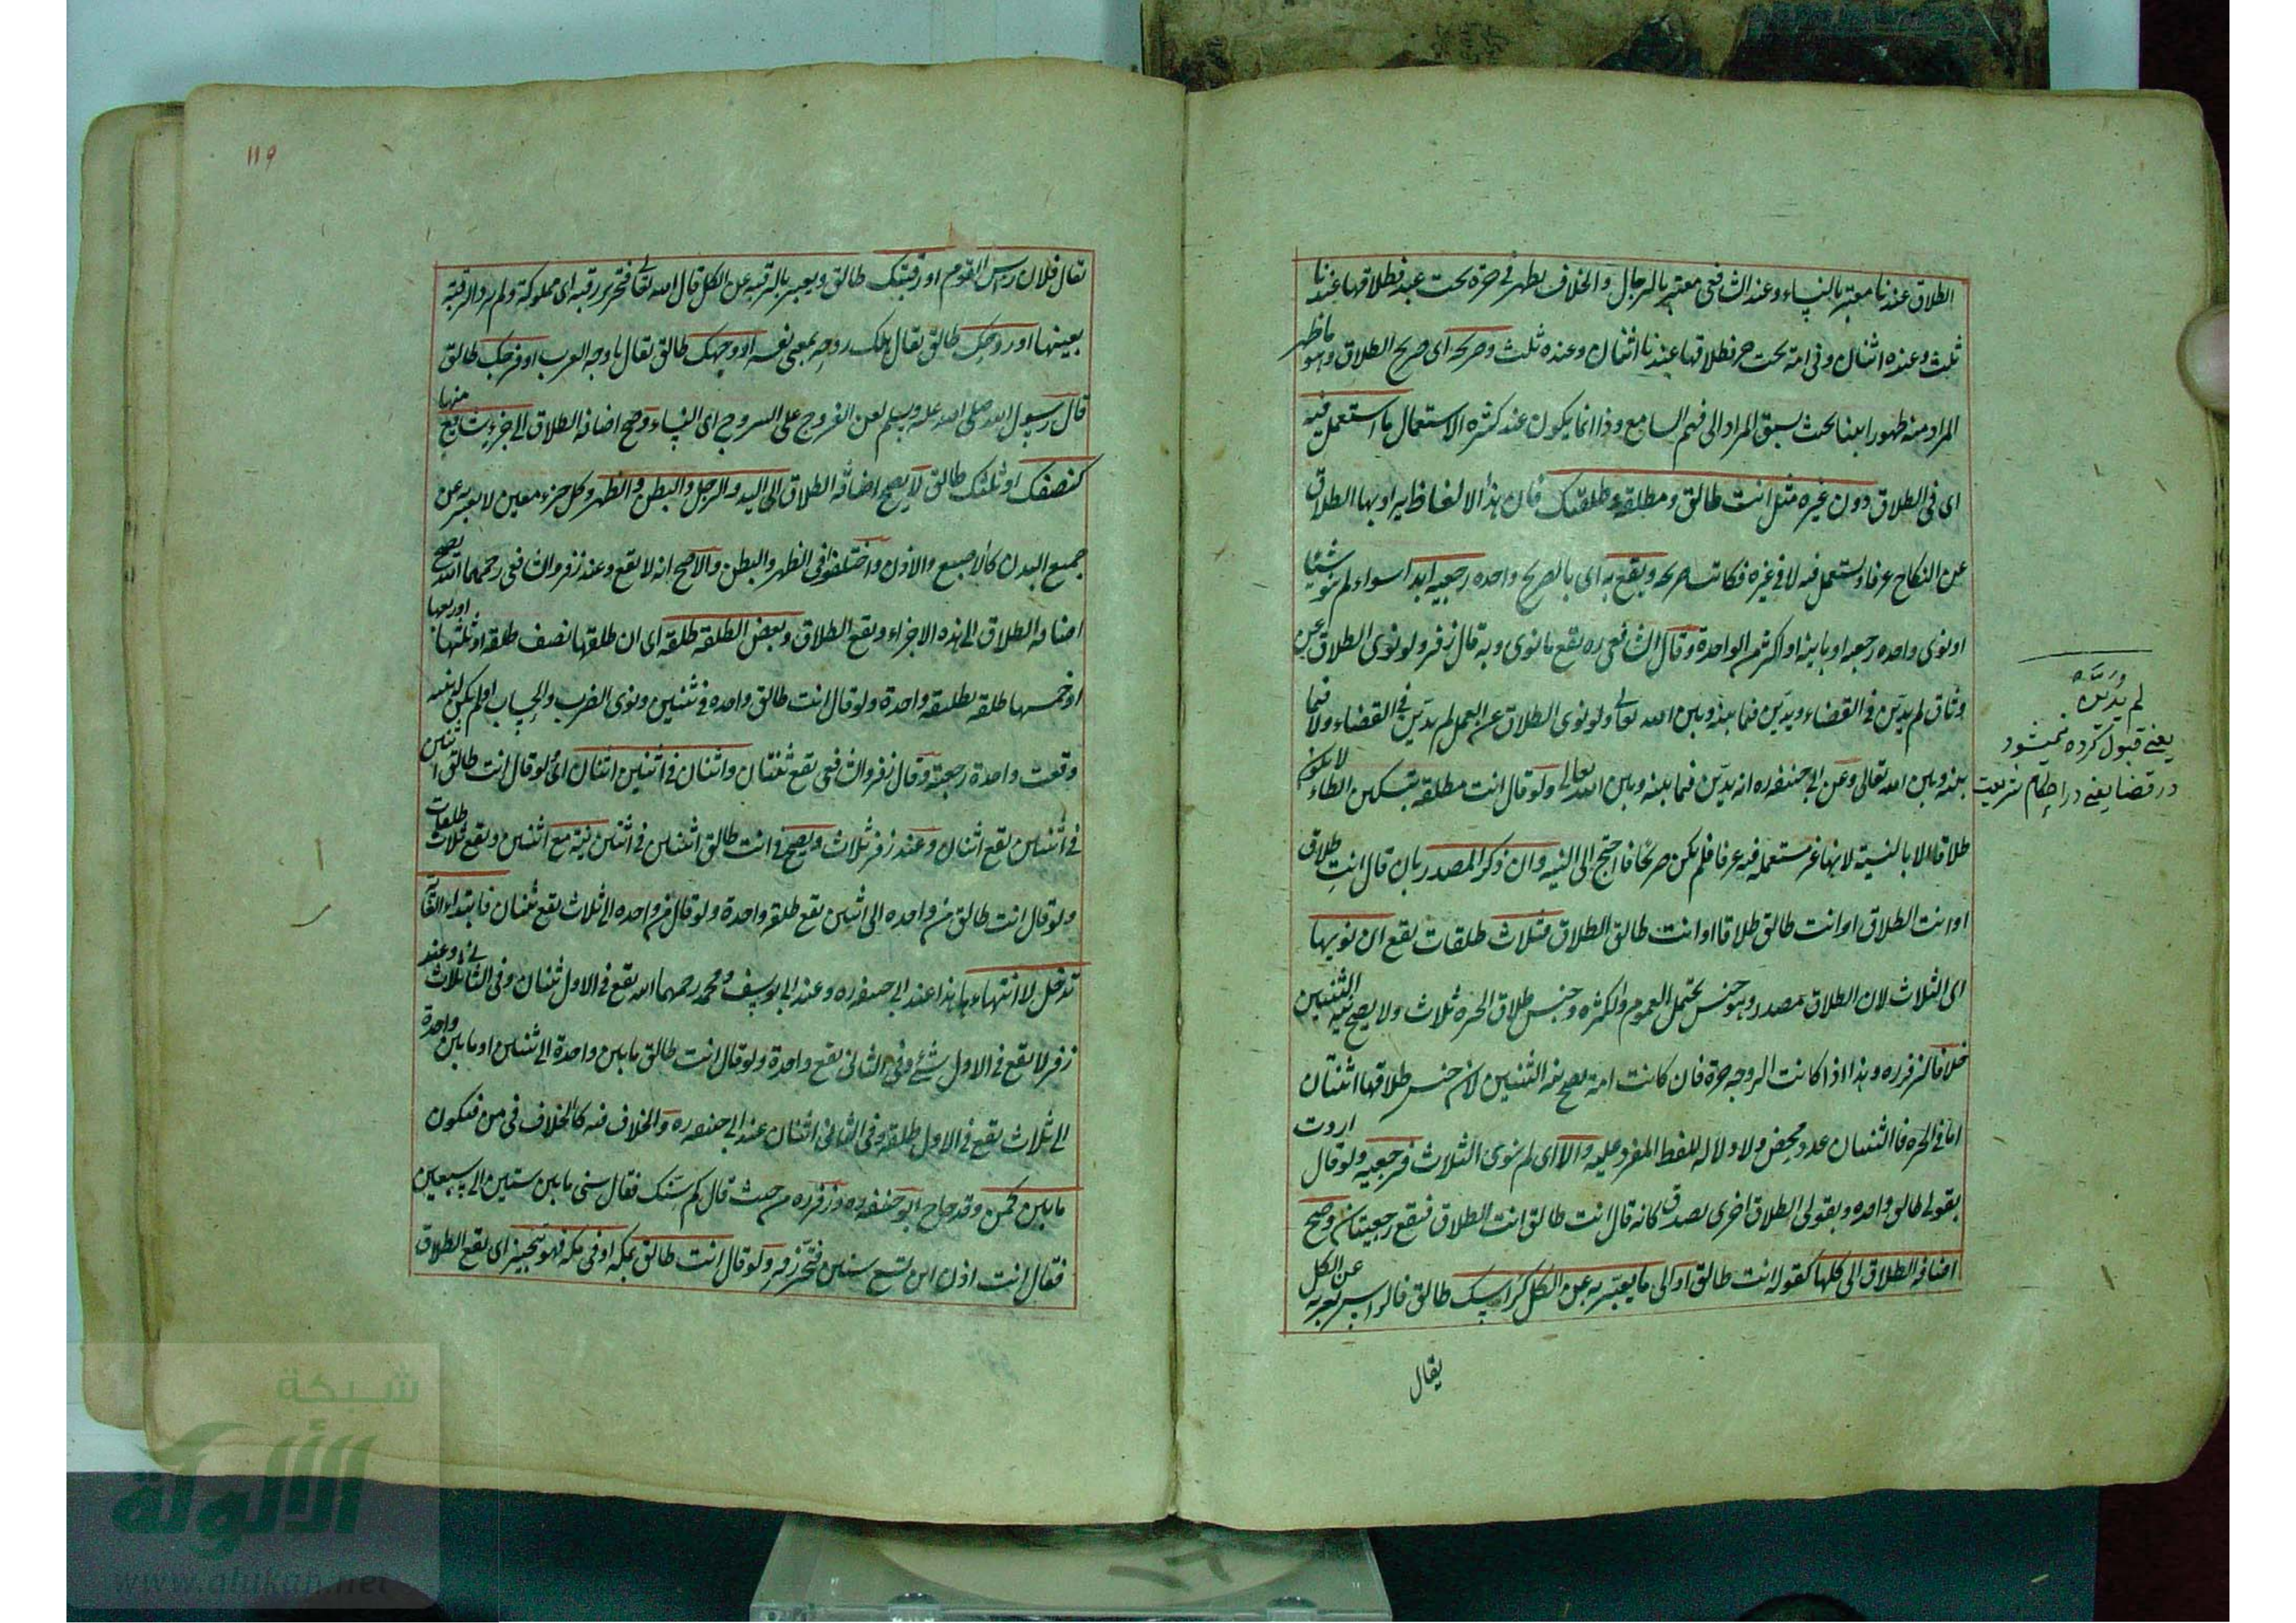 الطلاق عندنا معتبر بالنساء وعند الشافعى معتبر بالرجال والخلاف يظهر فى حرة تحت عبد فطلاقها عندنا
ثلث وعنده اثنان وفى امة تحت حر فطلاقها عندنا اثنان وعنده ثلث وصريحه اى صريح الطلاق وهو ما ظهر
المراد منه ظهورا بينا بحيث يسبق المراد الى فهم السامع وذا انما يكون عند كثرة الاستعمال ما استعمل فيه
اى فى الطلاق دون غيره مثل انت طالق ومطلقة وطلقتك فان هذا الالفاظ يراد بها الطلاق
عن النكاح عرفا ويستعمل فيه لا فى غيره فكانت صريحه ويقع به اى بالصريح واحدة رجعية ابدا سواء لم ينو شيئا
او نوى واحده رجعيه او باينة او اكثر من الواحدة وقال الشافعى ره يقع ما نوى وبه قال زفر ولو نوى الطلاق عن
وثاق لم يديّن فى القضاء ويديّن فيما بينه وبين الله تعالى ولو نوى الطلاق عن العمل لم يديّن فى القضاء ولا فيما
بينه وبين الله تعالى وعن ابى حنيفه ره انه يديّن فيما بينه وبين الله تعالى ولو قال انت مطلقه بتسكين الطاء لا يكون
طلاقا الا بالنية لانها غير مستعمله فيه عرفا فلم يكن صريحا فاحتج الى النيه وان ذكر المصدر بان قال انت طلاق
او انت الطلاق او انت طالق طلاقا او انت طالق الطلاق فثلاث طلقات يقع ان نويها
اى الثلاث لان الطلاق مصدر وهو جنس يحتمل العموم والكثره وجنس طلاق الحره ثلاث ولا يصح نية الثنتين
خلافا لزفر ره وهذا اذا كانت الزوجه حرة فان كانت امة يصح نية الثنتين لان جنس طلاقها اثنتان
اما فى الحره فالثنتان عدد محض ولا دلاله للفظ المفرد عليه والا اى لم ينوى الثلاث فرجعيه ولو قال اردت
بقولى طالق واحده وبقولى الطلاق اخرى يصدق كانه قال انت طالق انت الطلاق فيقع رجعيتان وصح
اضافه الطلاق الى كلها كقوله انت طالق او الى ما يعبّر به عن الكل كراسك طالق فالراس يعبر به عن الكل
يقال
لم يديّن
يعنى قبول كرده نميشود
در قضا يعنى در احكام شريعت
١١٩
يقال فلان راس القوم او رقبتك طالق ويعبر بالرقبه عن الكل قال الله تعالى فتحرير رقبه اى مملوكة ولم يرد الرقبة
بعينها او روحك طالق يقال هلك روحه بمعنى نفسه او وجهك طالق يقال يا وجه العرب او فرجك طالق
قال رسول الله صلى الله عليه وسلم لعن الفروج على السروج اى النساء وصح اضافة الطلاق الى جزء شايع منها
كنصفك او ثلثك طالق لا يصح اضافة الطلاق الى اليد والرجل والبطن والظهر وكل جزء معين لا يعبر به عن
جميع البدن كالاصبع والاذن واختلفوا فى الظهر والبطن والاصح انه لا يقع وعند زفر والشافعى رحمهما الله يصح
اضافة الطلاق الى هذه الاجزاء ويقع الطلاق وبعض الطلقة طلقه اى ان طلقها نصف طلقه او ثلثها او ربعها
او خمسها طلقه تطليقه واحدة ولو قال انت طالق واحده فى ثنتين ونوى الضرب والحساب او لم يكن له نيه
وقعت واحدة رجعية وقال زفر والشافعى يقع ثنتان واثنتان فى اثنتين اثنتان اى لو قال انت طالق اثنتين
فى اثنتين يقع اثنتان وعند زفر ثلاث ويصح فى انت طالق اثنتين فى اثنتين نية مع اثنتين ويقع ثلاث طلقات
ولو قال انت طالق من واحده الى اثنتين يقع طلقه واحدة ولو قال من واحده الى ثلاث يقع ثنتان فابتداء الغاية
تدخل لا انتهاءها هذا عند ابى حنيفه ره وعند ابى يوسف ومحمد رحمهما الله يقع فى الاول ثنتان وفى الثانى ثلاث وعند
زفر لا يقع فى الاول شئ وفى الثانى يقع واحدة ولو قال انت طالق ما بين واحدة الى ثنتين او ما بين واحدة
الى ثلاث يقع فى الاول طلقه وفى الثانى اثنتان عند ابى حنيفه ره والخلاف فيه كالخلاف فى من فيكون
ما بين كمن وقد حاج ابو حنيفه ره وزفر ره من حيث قال كم سنك فقال سنى ما بين ستين الى سبعين
فقال انت اذن ابن تسع سنين فتحيّر زفر ولو قال انت طالق بمكه او فى مكه فهو تنجيز اى يقع الطلاق
شبكة
الألوكة
www.alukah.net